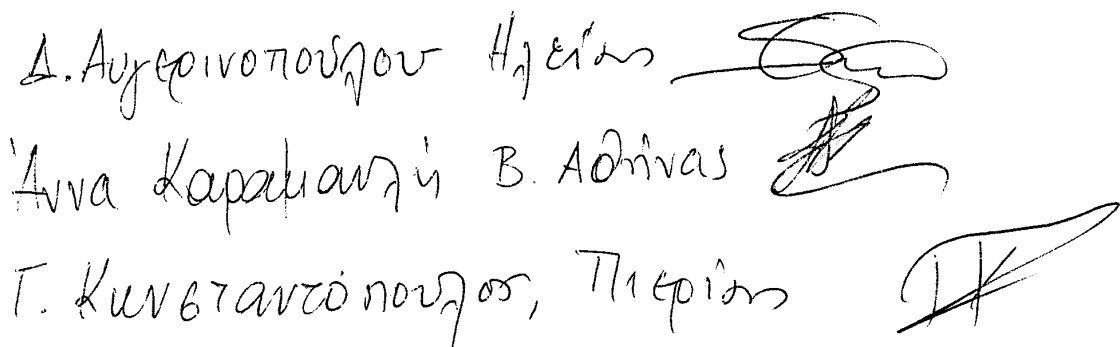 Δ. Αυγερινοπούλου Ηλείας
Άννα Καραμανλή Β. Αθήνας
Γ. Κωνσταντόπουλος, Πιερίας